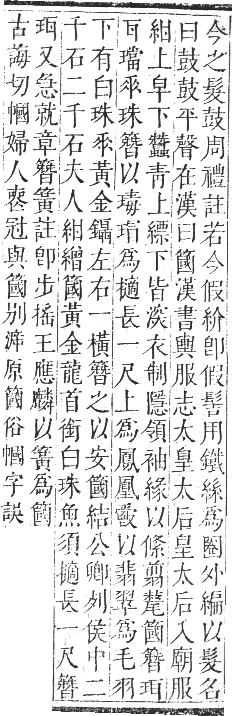 今之髮鼓周禮註若今假紒卽假髻用鐵絲爲圈外編以髮名
曰鼓鼓平聲在漢曰簂漢書輿服志太皇太后皇太后入廟服
紺上皁下蠶靑上縹下皆深衣制隱領袖緣以絛翦氂簂簪珥
珥璫垂珠簪以瑇瑁爲擿長一尺上爲鳳凰爵以翡翠爲毛羽
下有白珠垂黃金鑷左右一橫簪之以安簂結公卿列侯中二
千石二千石夫人紺繒簂黃金龍首銜白珠魚須擿長一尺簪
珥又急就章簪簧註卽步摇王應麟以簧爲簂
古誨切幗婦人喪冠與簂别滹原簂俗幗字誤